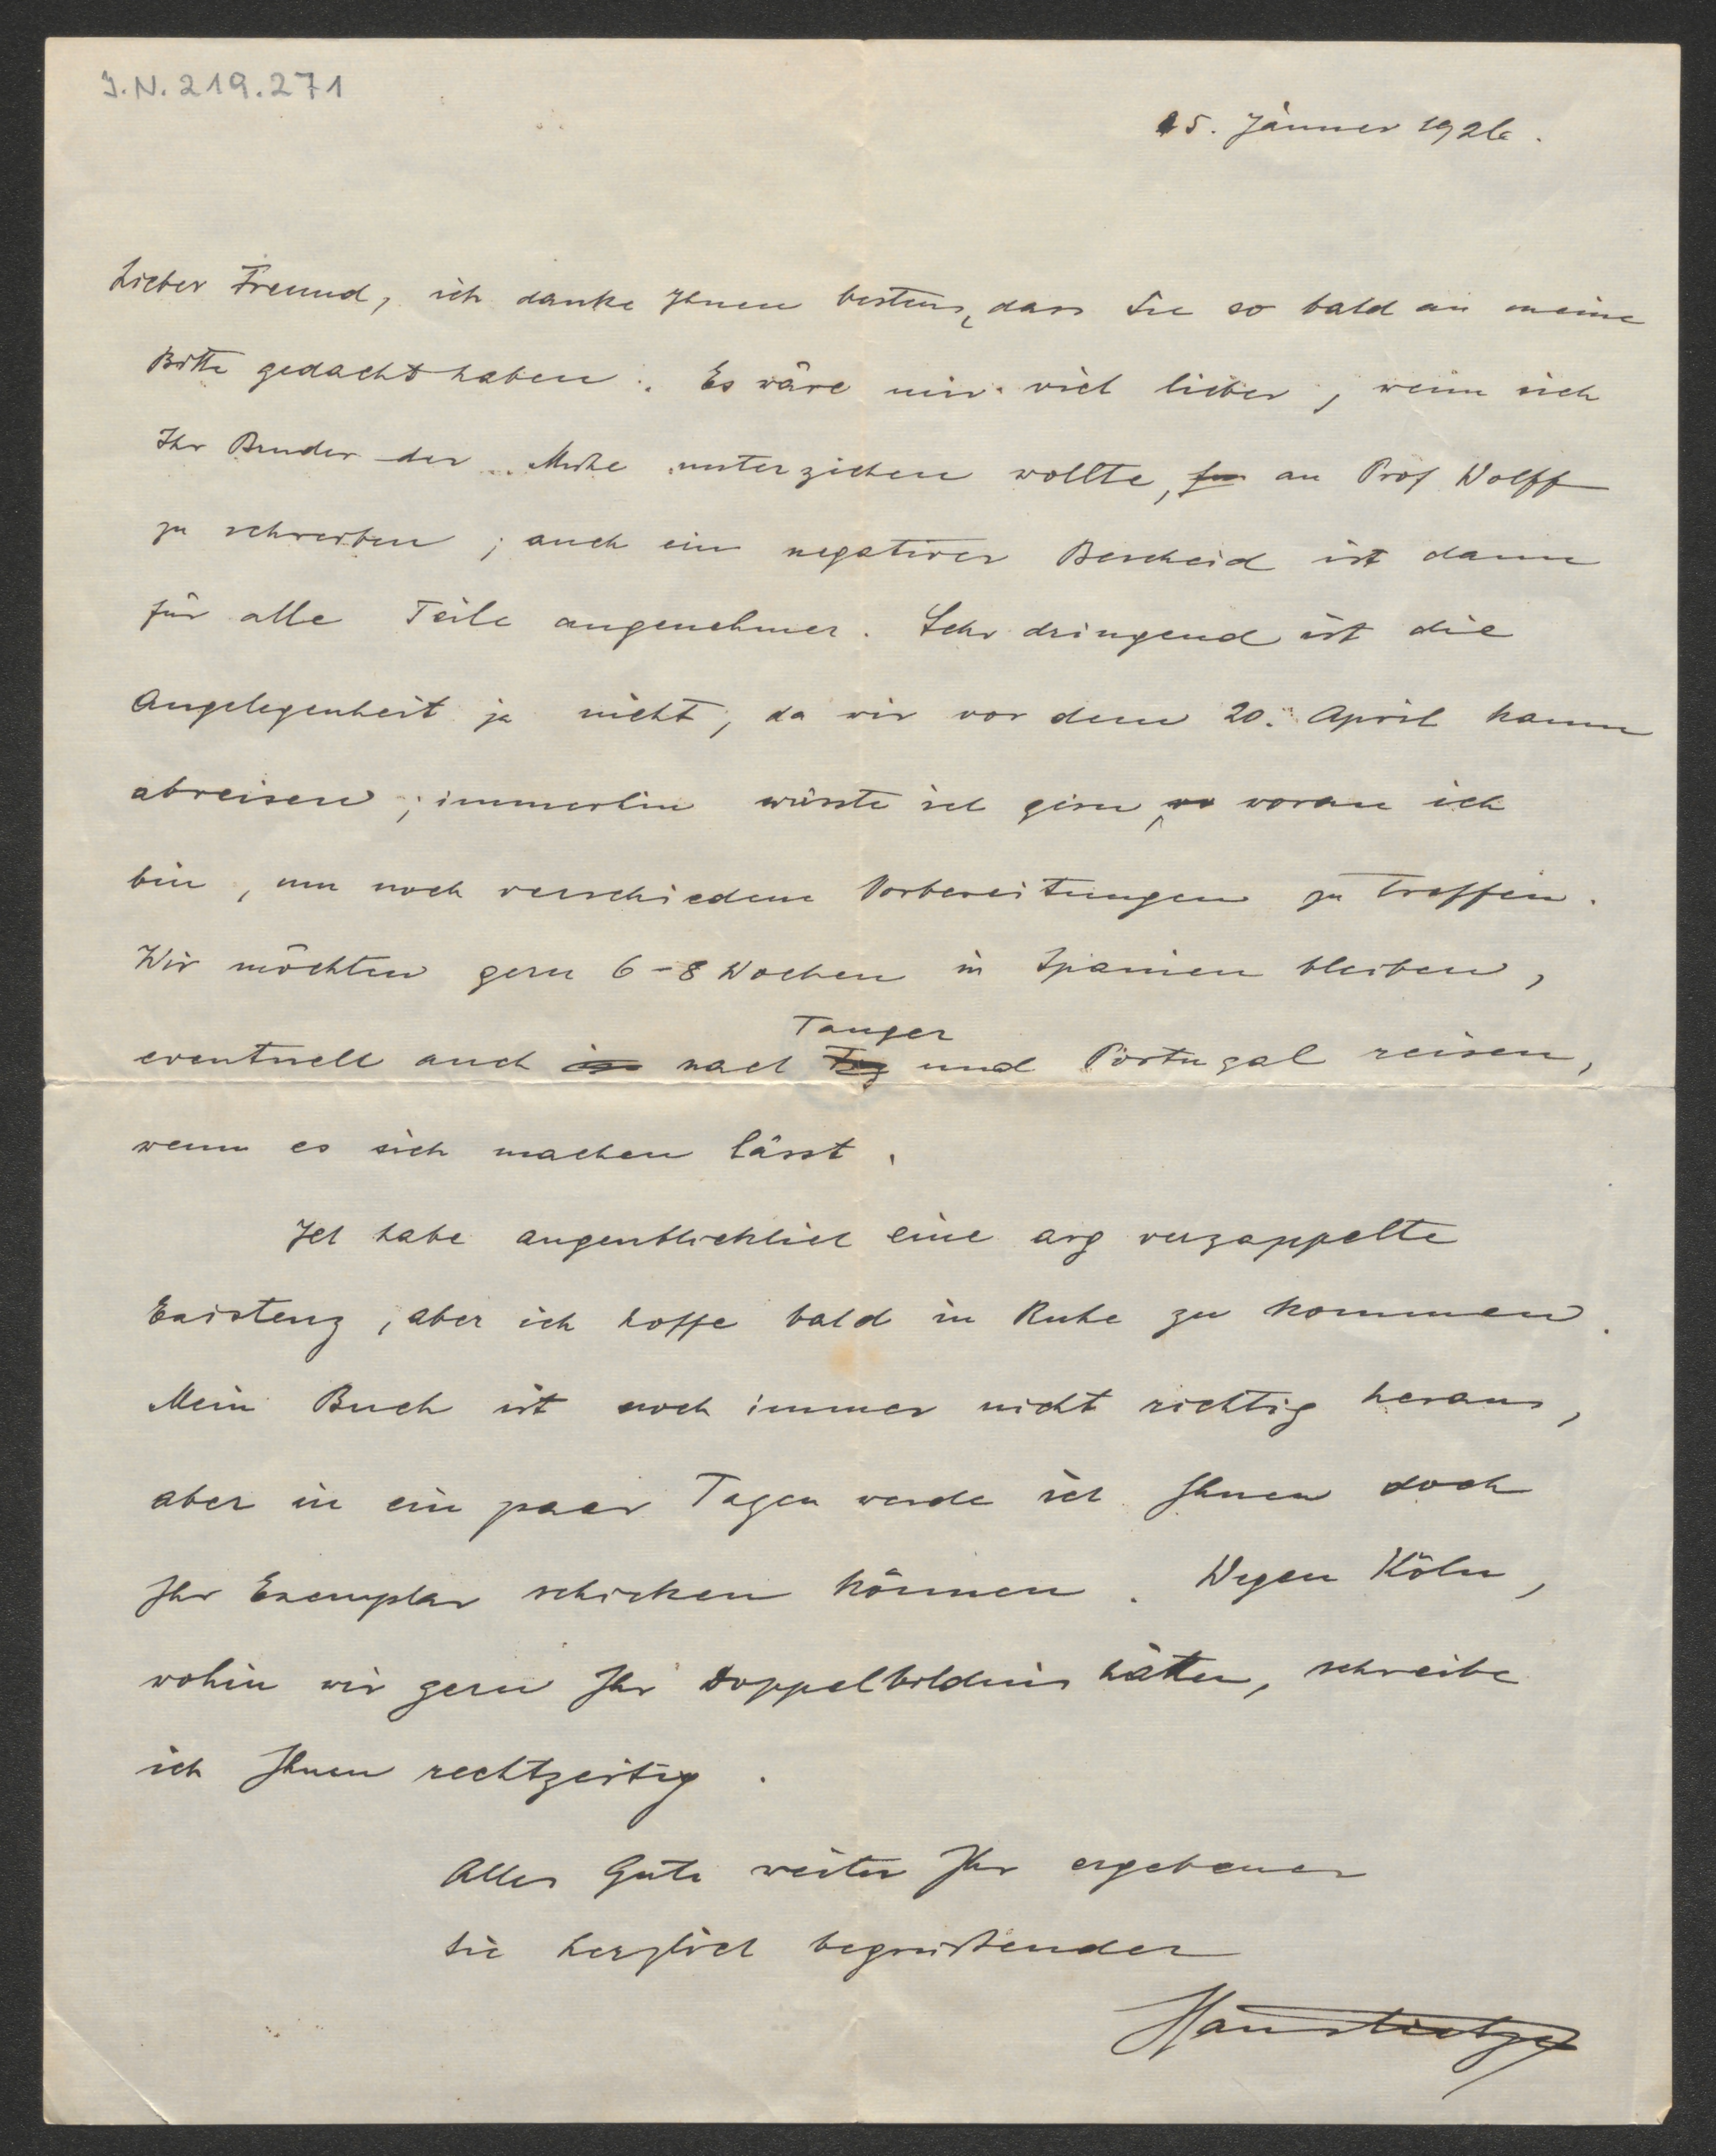 J.N. 219.271
15. Jänner 1926.
Lieber Freund, ich danke Ihnen bestens, dass Sie so bald an meine
Bitte gedacht haben. Es wäre mir viel lieber, wenn sich
Ihr Bruder der Mühe unterziehen wollte, an Prof Wolff
zu schreiben; auch ein negativer Bescheid ist dann
für alle Teile angenehmer. Sehr dringend ist die
Angelegenheit ja nicht, da wir vor dem 20. April kaum
abreisen; immerhin wüsste ich gern, woran ich
bin, um noch verschiedene Vorbereitungen zu treffen.
Wir möchten gern 6-8 Wochen in Spanien bleiben,
eventuell auch nach Tanger und Portugal reisen,
wenn es sich machen lässt.
Ich habe augenblicklich eine arg verzappelte
Existenz, aber ich hoffe bald in Ruhe zu kommen.
Mein Buch ist noch immer nicht richtig heraus,
aber in ein paar Tagen werde ich Ihnen doch
Ihr Exemplar schicken können. Wegen Köln,
wohin wir gern Ihr Doppelbildnis hätten, schreibe
ich Ihnen rechtzeitig.
Alles Gute weiter Ihr ergebener
Sie herzlich begrüssender
Hans Tietze